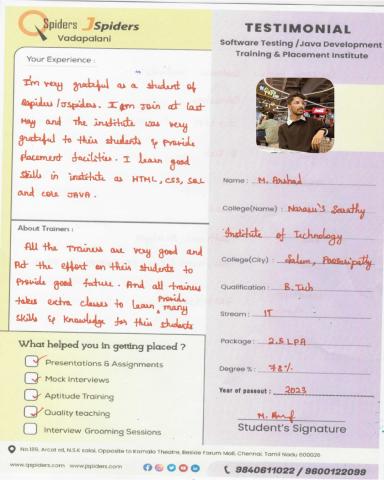 QSpiders JSpiders
Vadapalani
TESTIMONIAL
Software Testing /Java Development
Training & Placement Institute
Your Experience :
I'm very grateful as a student of
Qspiders/Jspiders. I am Join at last
May and The institute was very
grateful to their students & provide
Placement facilities. I learn good
Skills in institute as HTML, CSS, SQL
and core JAVA.
About Trainers :
All the Trainers are very good and
Put the effort on their students to
Provide good future. And all trainers
takes extra classes to learn, provide many
skills & knowledge for their students
What helped you in getting placed ?
Presentations & Assignments
Mock Interviews
Aptitude Training
Quality teaching
Interview Grooming Sessions
Name : M. Arshad
College(Name) : Narasu's Sarathy
Institute of Technology
College(City) : Salem, Poosaripatty
Qualification : B.Tech
Stream : IT
Package : 2.8 LPA
Degree % : 78%
Year of passout : 2023
Student's Signature
No.189, Arcot rd, N.S.K salai, Opposite to Kamala Theatre, Beside Forum Mall, Chennai, Tamil Nadu 600026
www.qspiders.com www.jspiders.com
9840611022 / 9600122099